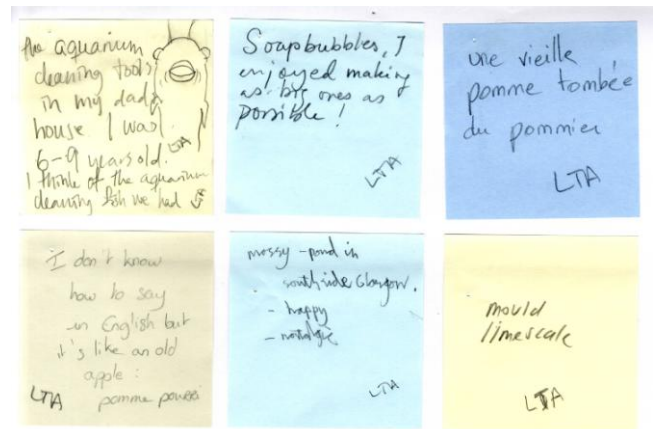 the aquarium
cleaning tools
in my dads
house I was
6-9 years old.
LTA
I think of the aquarium
cleaning fish we had
Soapbubbles, I
enjoyed making
as big ones as
possible!
LTA
une vieille
pomme tombée
du pommier
LTA
I don't know
how to say
in English but
it's like an old
apple:
LTA pomme pourri
mossy-pond in
southside Glasgow.
- happy
- nostalgic
LTA
mould
limescale
LTA